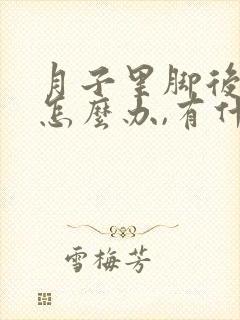 月子里脚後
怎麼办,有什
雪梅芳